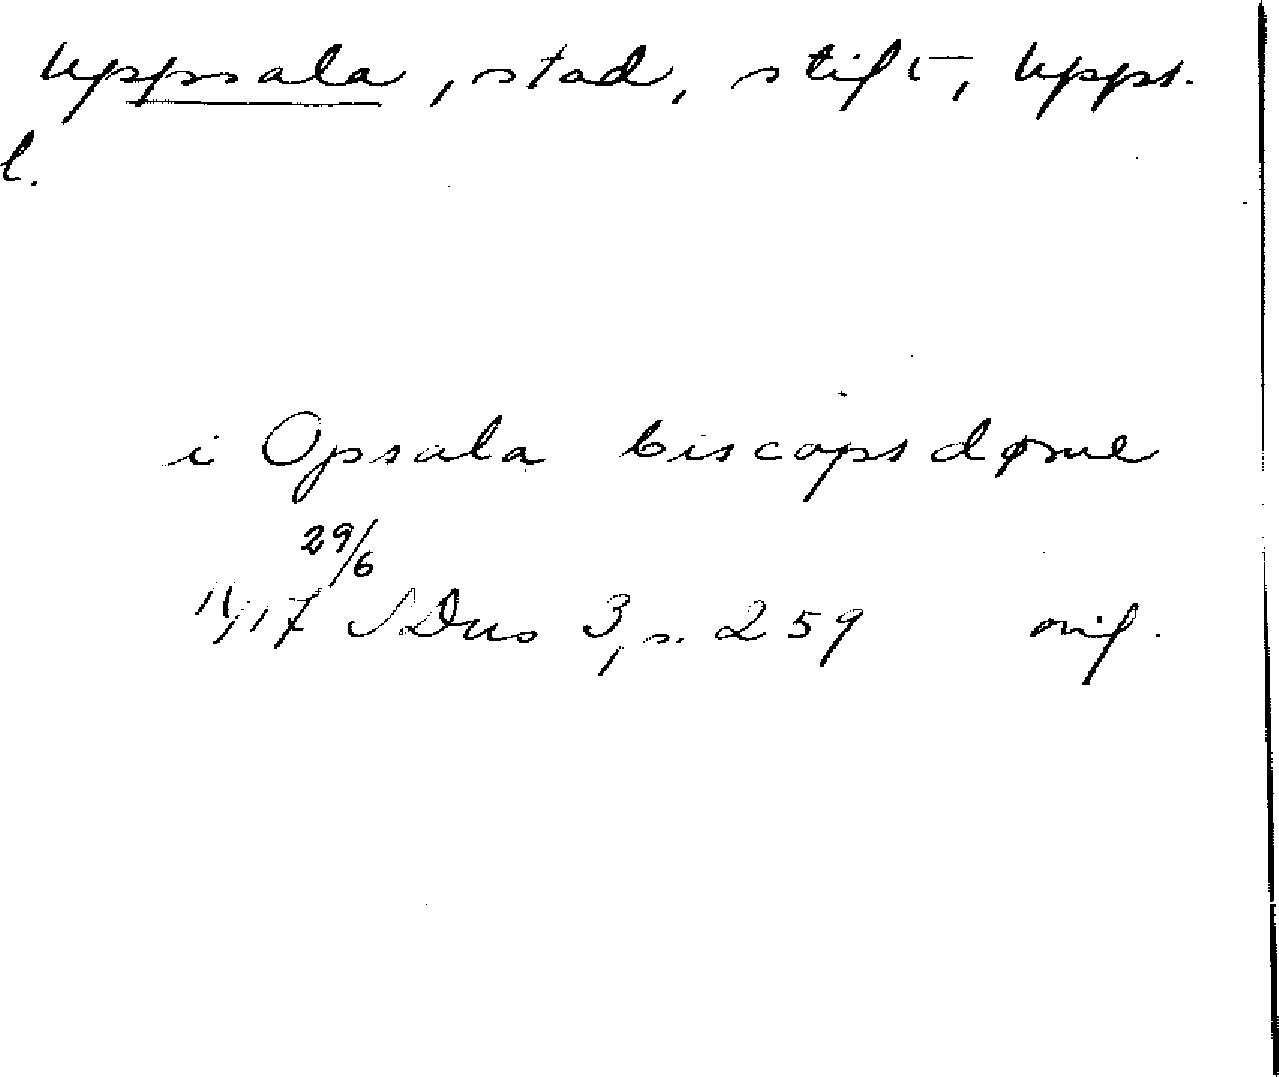 Uppsala, stad, stift, Upps.
l.
i Opsala biscopsdøme
29/6
1417 SDns 3, s. 259 orig.